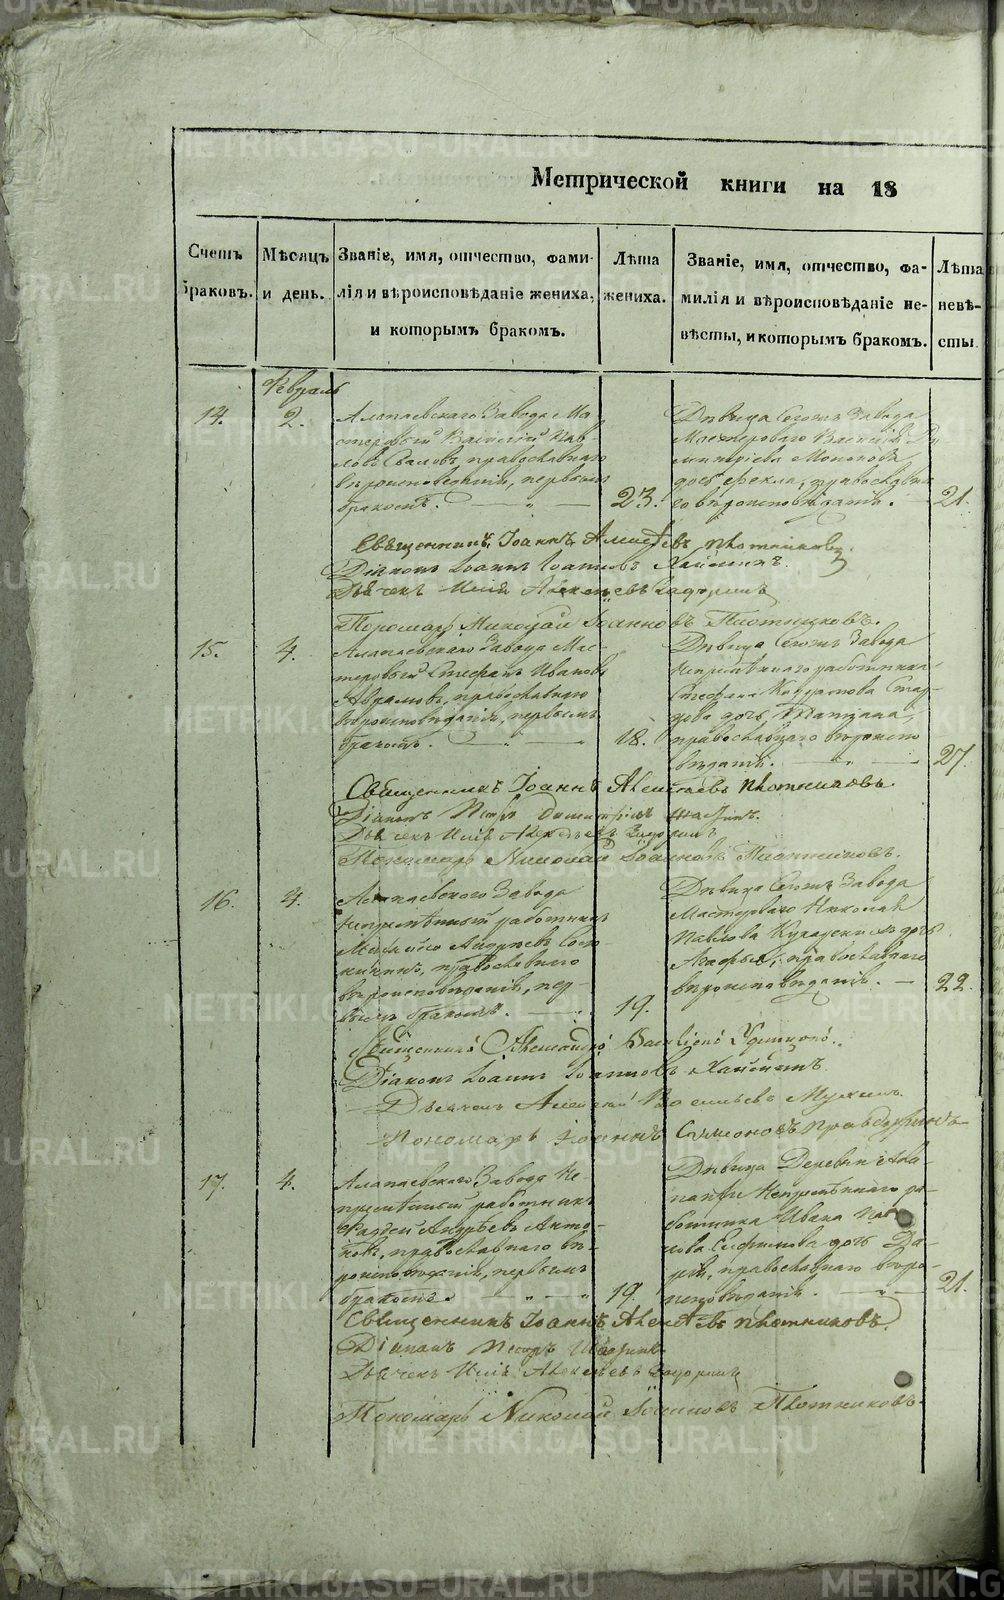 Метрической книги на 18
Счетъ браковъ.
Мѣсяцъ и день.
Званіе, имя, отчество, фами-
лія и вѣроисповѣданіе жениха,
и которымъ бракомъ.
Лѣта
жениха.
Званіе, имя, отчество, фа-
милія и вѣроисповѣданіе не-
вѣсты, и которымъ бракомъ.
Лѣта
невѣ-
сты
Февраль
14.
2.
Алапаевскаго Завода Ма-
стеровый Василій Пав-
ловъ, православнаго
вѣроисповѣданія, первымъ
бракомъ.
23.
Дѣвица Сегожъ Завода
Мастероваго Василія Ди-
митріева
дочь Фекла, православна-
го вѣроисповѣданія.
21.
Священникъ Іоаннъ Алексѣевъ Плотниковъ.
Діаконъ Іоаннъ Іоанновъ
Дьячекъ Илія Алексѣевъ
Пономарь Николай Іоанновъ Плотниковъ.
15.
4.
Алапаевскаго Завода Мас-
теровый Стефанъ Ивановъ
Аврамовъ, православнаго
вѣроисповѣданія, первымъ
бракомъ.
18.
Дѣвица Сегожъ Завода
Непремѣннаго работника
Стефана
дочь Татіана,
православнаго вѣроиспо-
вѣданія.
27.
Священникъ Іоаннъ Алексѣевъ Плотниковъ.
Діаконъ Петръ Димитріевъ
Дьячекъ Илія Алексѣевъ
Пономарь Николай Іоанновъ Плотниковъ.
16.
4.
Алапаевскаго Завода
непремѣнный работникъ
Андреевъ
православнаго
вѣроисповѣданія, пер-
вымъ бракомъ.
19.
Дѣвица Сегожъ Завода
Мастероваго Николая
Павлова дочь
Агафья, православнаго
вѣроисповѣданія.
22.
Священникъ Александръ Василіевъ Удинцовъ.
Діаконъ Іоаннъ Іоанновъ
Дьячекъ Алексій Васильевъ
Пономарь Іоаннъ Симоновъ
17.
4.
Алапаевскаго Завода Не-
премѣнный работникъ
Фаддей Андреевъ Анто-
новъ, православнаго вѣ-
роисповѣданія, первымъ
бракомъ.
19.
Дѣвица Деревни Ала-
панхи Непремѣннаго ра-
ботника Ивана Пав-
лова дочь Да-
рья, православнаго вѣро-
исповѣданія.
21.
Священникъ Іоаннъ Алексѣевъ Плотниковъ.
Діаконъ Петръ
Дьячекъ Илія Алексѣевъ
Пономарь Николай Іоанновъ Плотниковъ.
METRIKI.GASO-URAL.RU